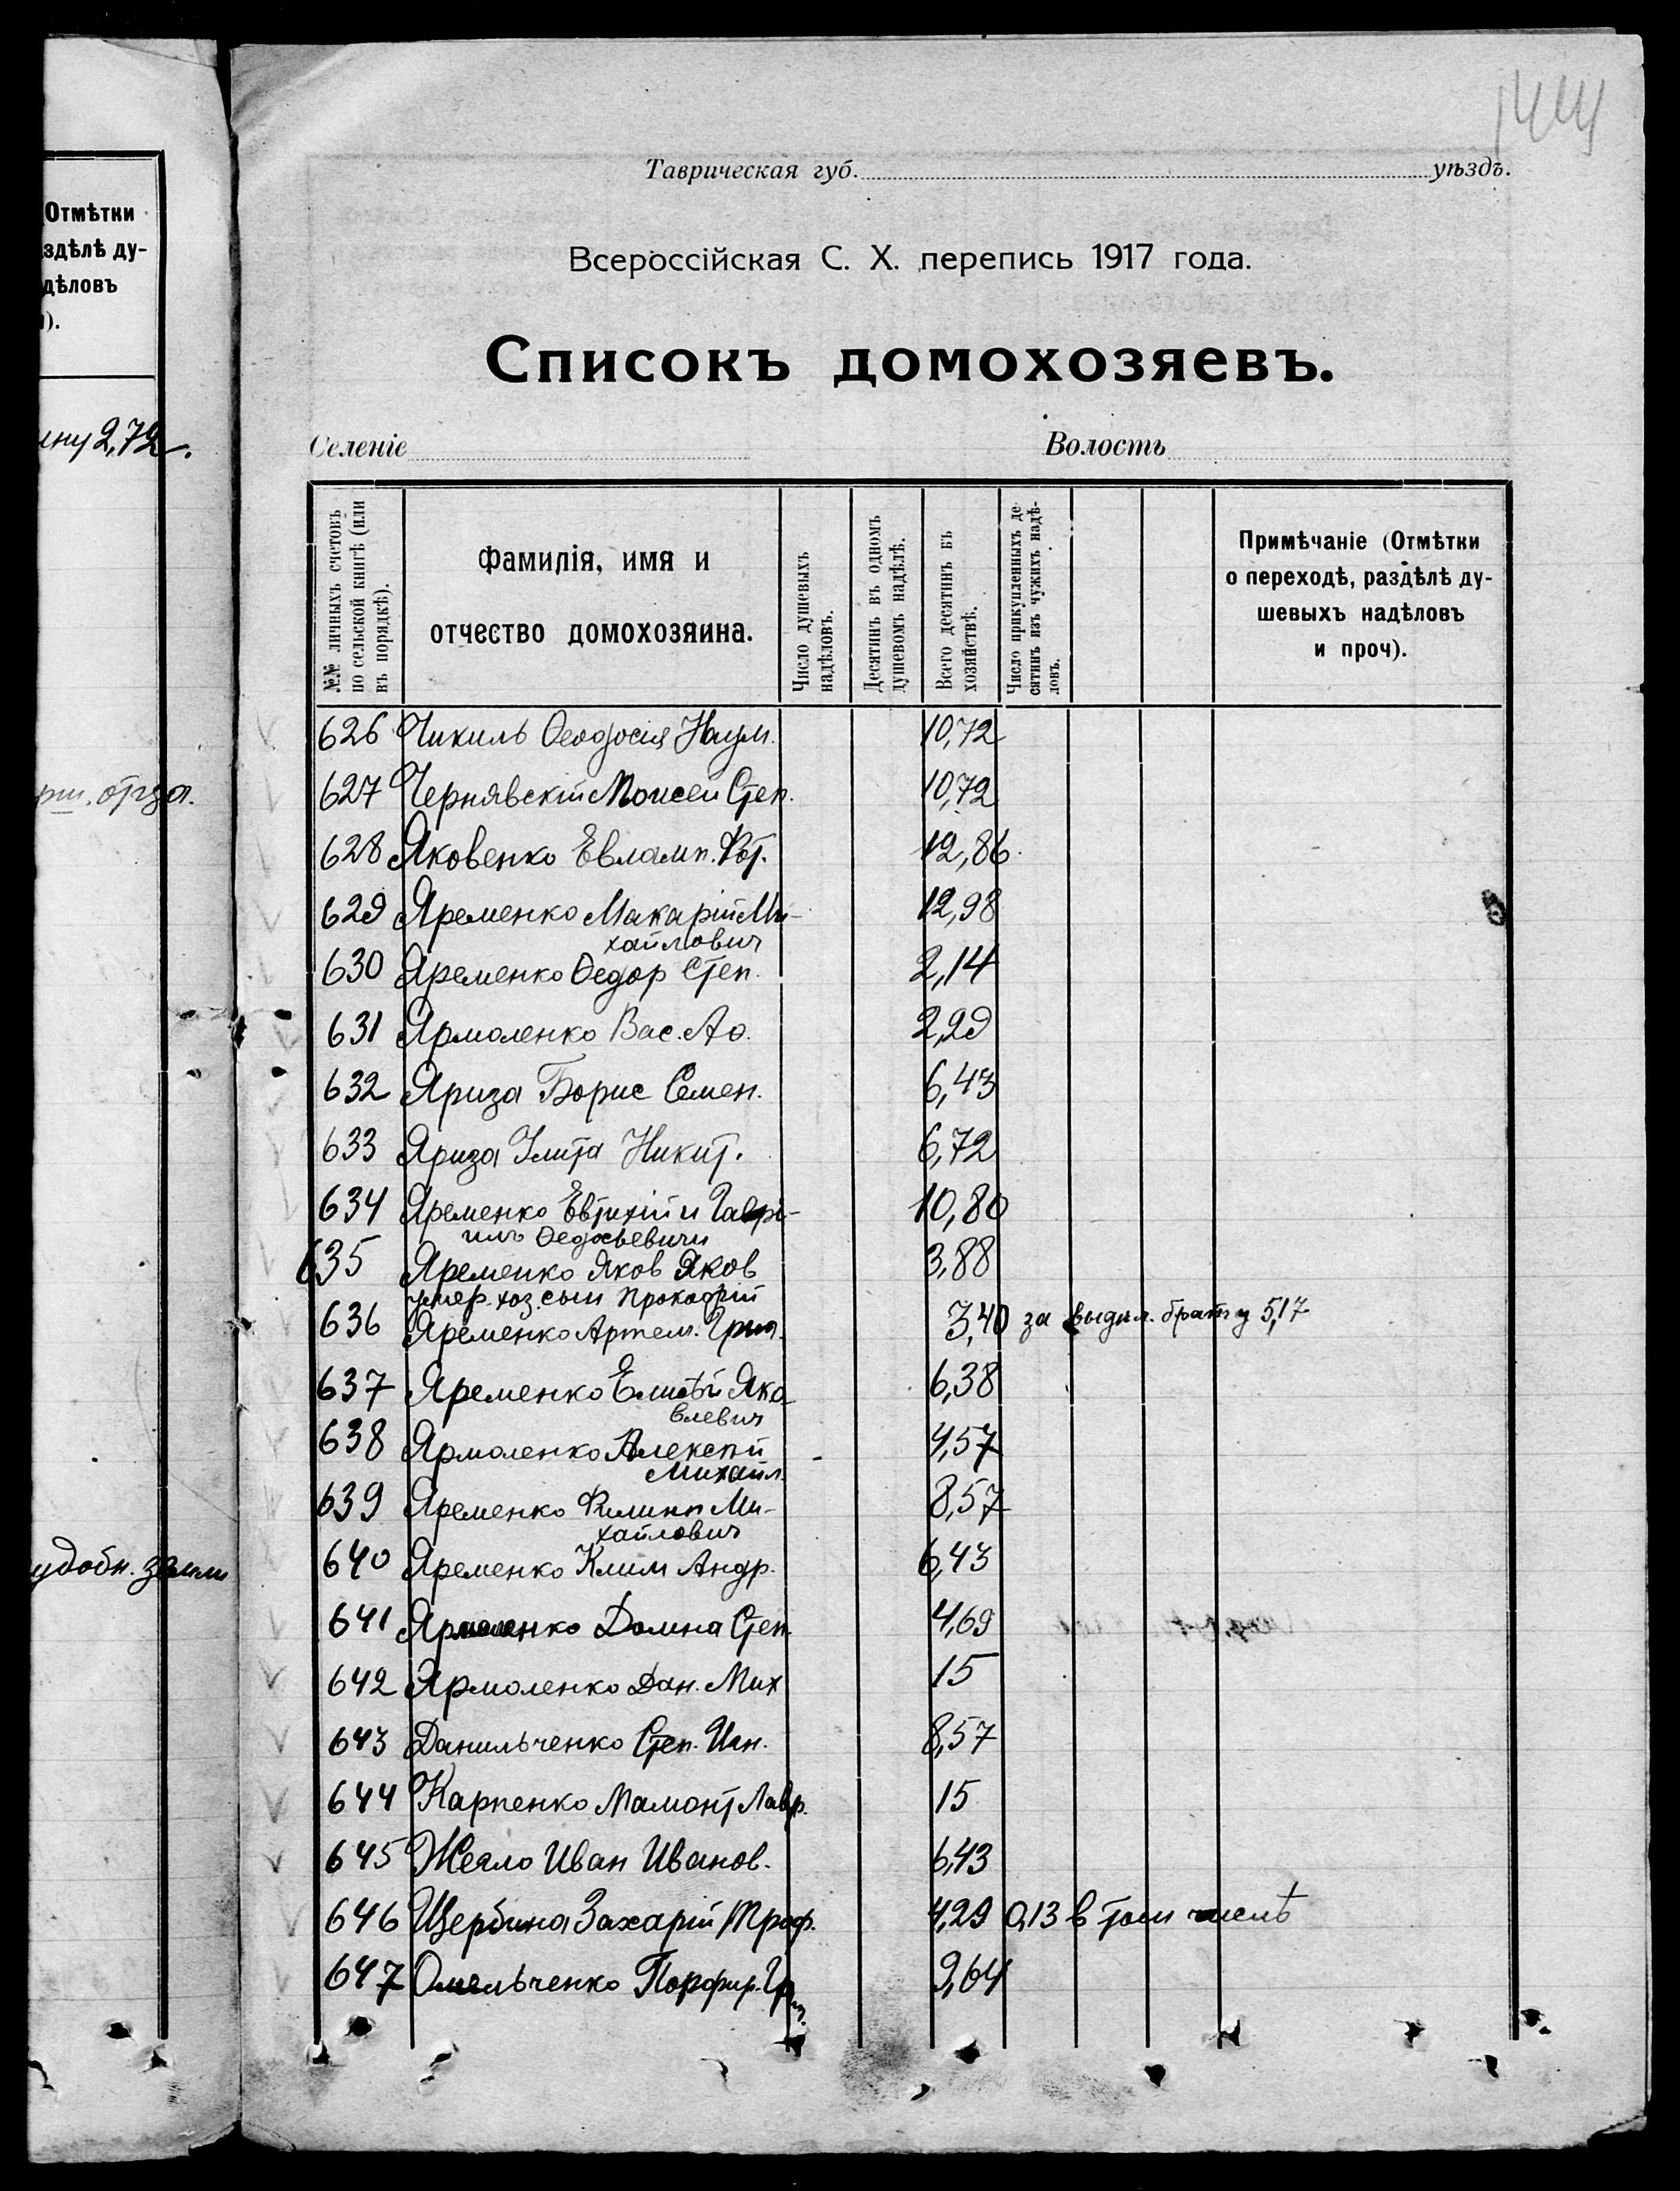 144
Таврическая губ. уѣздъ.
Всероссійская С. Х. перепись 1917 года.
Списокъ домохозяевъ.
Селеніе Волость
№№ личныхъ счетовъ по сельской книгѣ (или въ порядкѣ).
Фамилія, имя и отчество домохозяина.
Число душевыхъ надѣловъ.
Десятинъ въ одномъ душевомъ надѣлѣ.
Всего десятинъ въ хозяйствѣ.
Число прикупленныхъ десятинъ изъ чужихъ надѣловъ.
Примѣчаніе (Отмѣтки
о переходѣ, раздѣлѣ ду-
шевыхъ надѣловъ
и проч).
626 Чикиль Ѳеодосія Наум. 10,72
627 Чернявскій Моисей Степ. 10,72
628 Яковенко Евламп. Фот. 12,86
629 Яременко Макарій Ми- 12,98
хайлович
630 Яременко Ѳедор Степ. 2,14
631 Ярмоленко Вас. Аѳ. 2,29
632 Яриза Борис Семен. 6,43
633 Яриза Улита Никит. 6,72
634 Яременко Евтихій и Гаврі- 10,80
илъ Ѳедосьевичи
635 Яременко Яков Яков 3,88
умер. хоз. сын Прокофій
636 Яременко Артем. Григ. 3,40 за выдѣл. брату 5,17
637 Яременко Елисѣй Яко- 6,38
влевич
638 Ярмоленко Алексѣй 4,57
Михайл.
639 Яременко Филипп Ми- 8,57
хайлович
640 Яременко Клим Андр. 6,43
641 Ярмоленко Домна Степ. 4,69
642 Ярмоленко Дан. Мих 15
643 Данильченко Степ. Игн. 8,57
644 Карпенко Мамонт Лавр. 15
645 Жеяло Иван Иванов. 6,43
646 Щербина Захарій Троф. 4,29 0,13 в том числѣ
647 Омельченко Порфир. Гр 9,64
Отмѣтки
здѣлѣ ду-
дѣловъ
).
ину 2,72.
отца.
удобн. земли